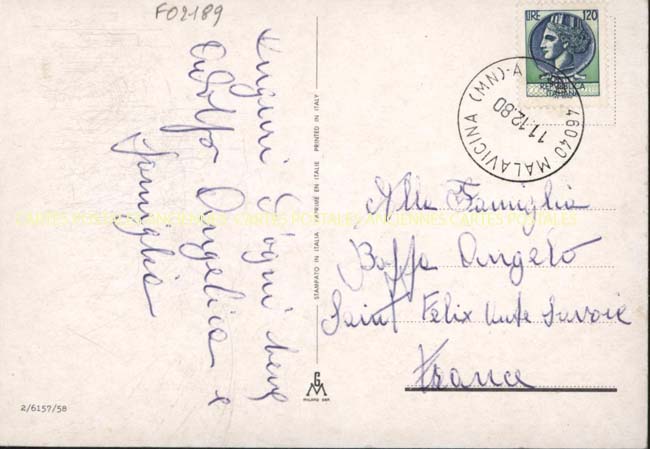 FO2189
Auguri d'ogni bene
Adolfo Angelica e
famiglia
STAMPATO IN ITALIA - IMPRIMÉ EN ITALIE - PRINTED IN ITALY
LIRE 120
46040 MALAVICINA (MN)-A
11.12.80
Alla Famiglia
Boffo Angelo
Saint Felix Haute Savoie
France
CARTES POSTALES ANCIENNES CARTES POSTALES ANCIENNES CARTES POSTALES
2/6157/58
GM
MILANO